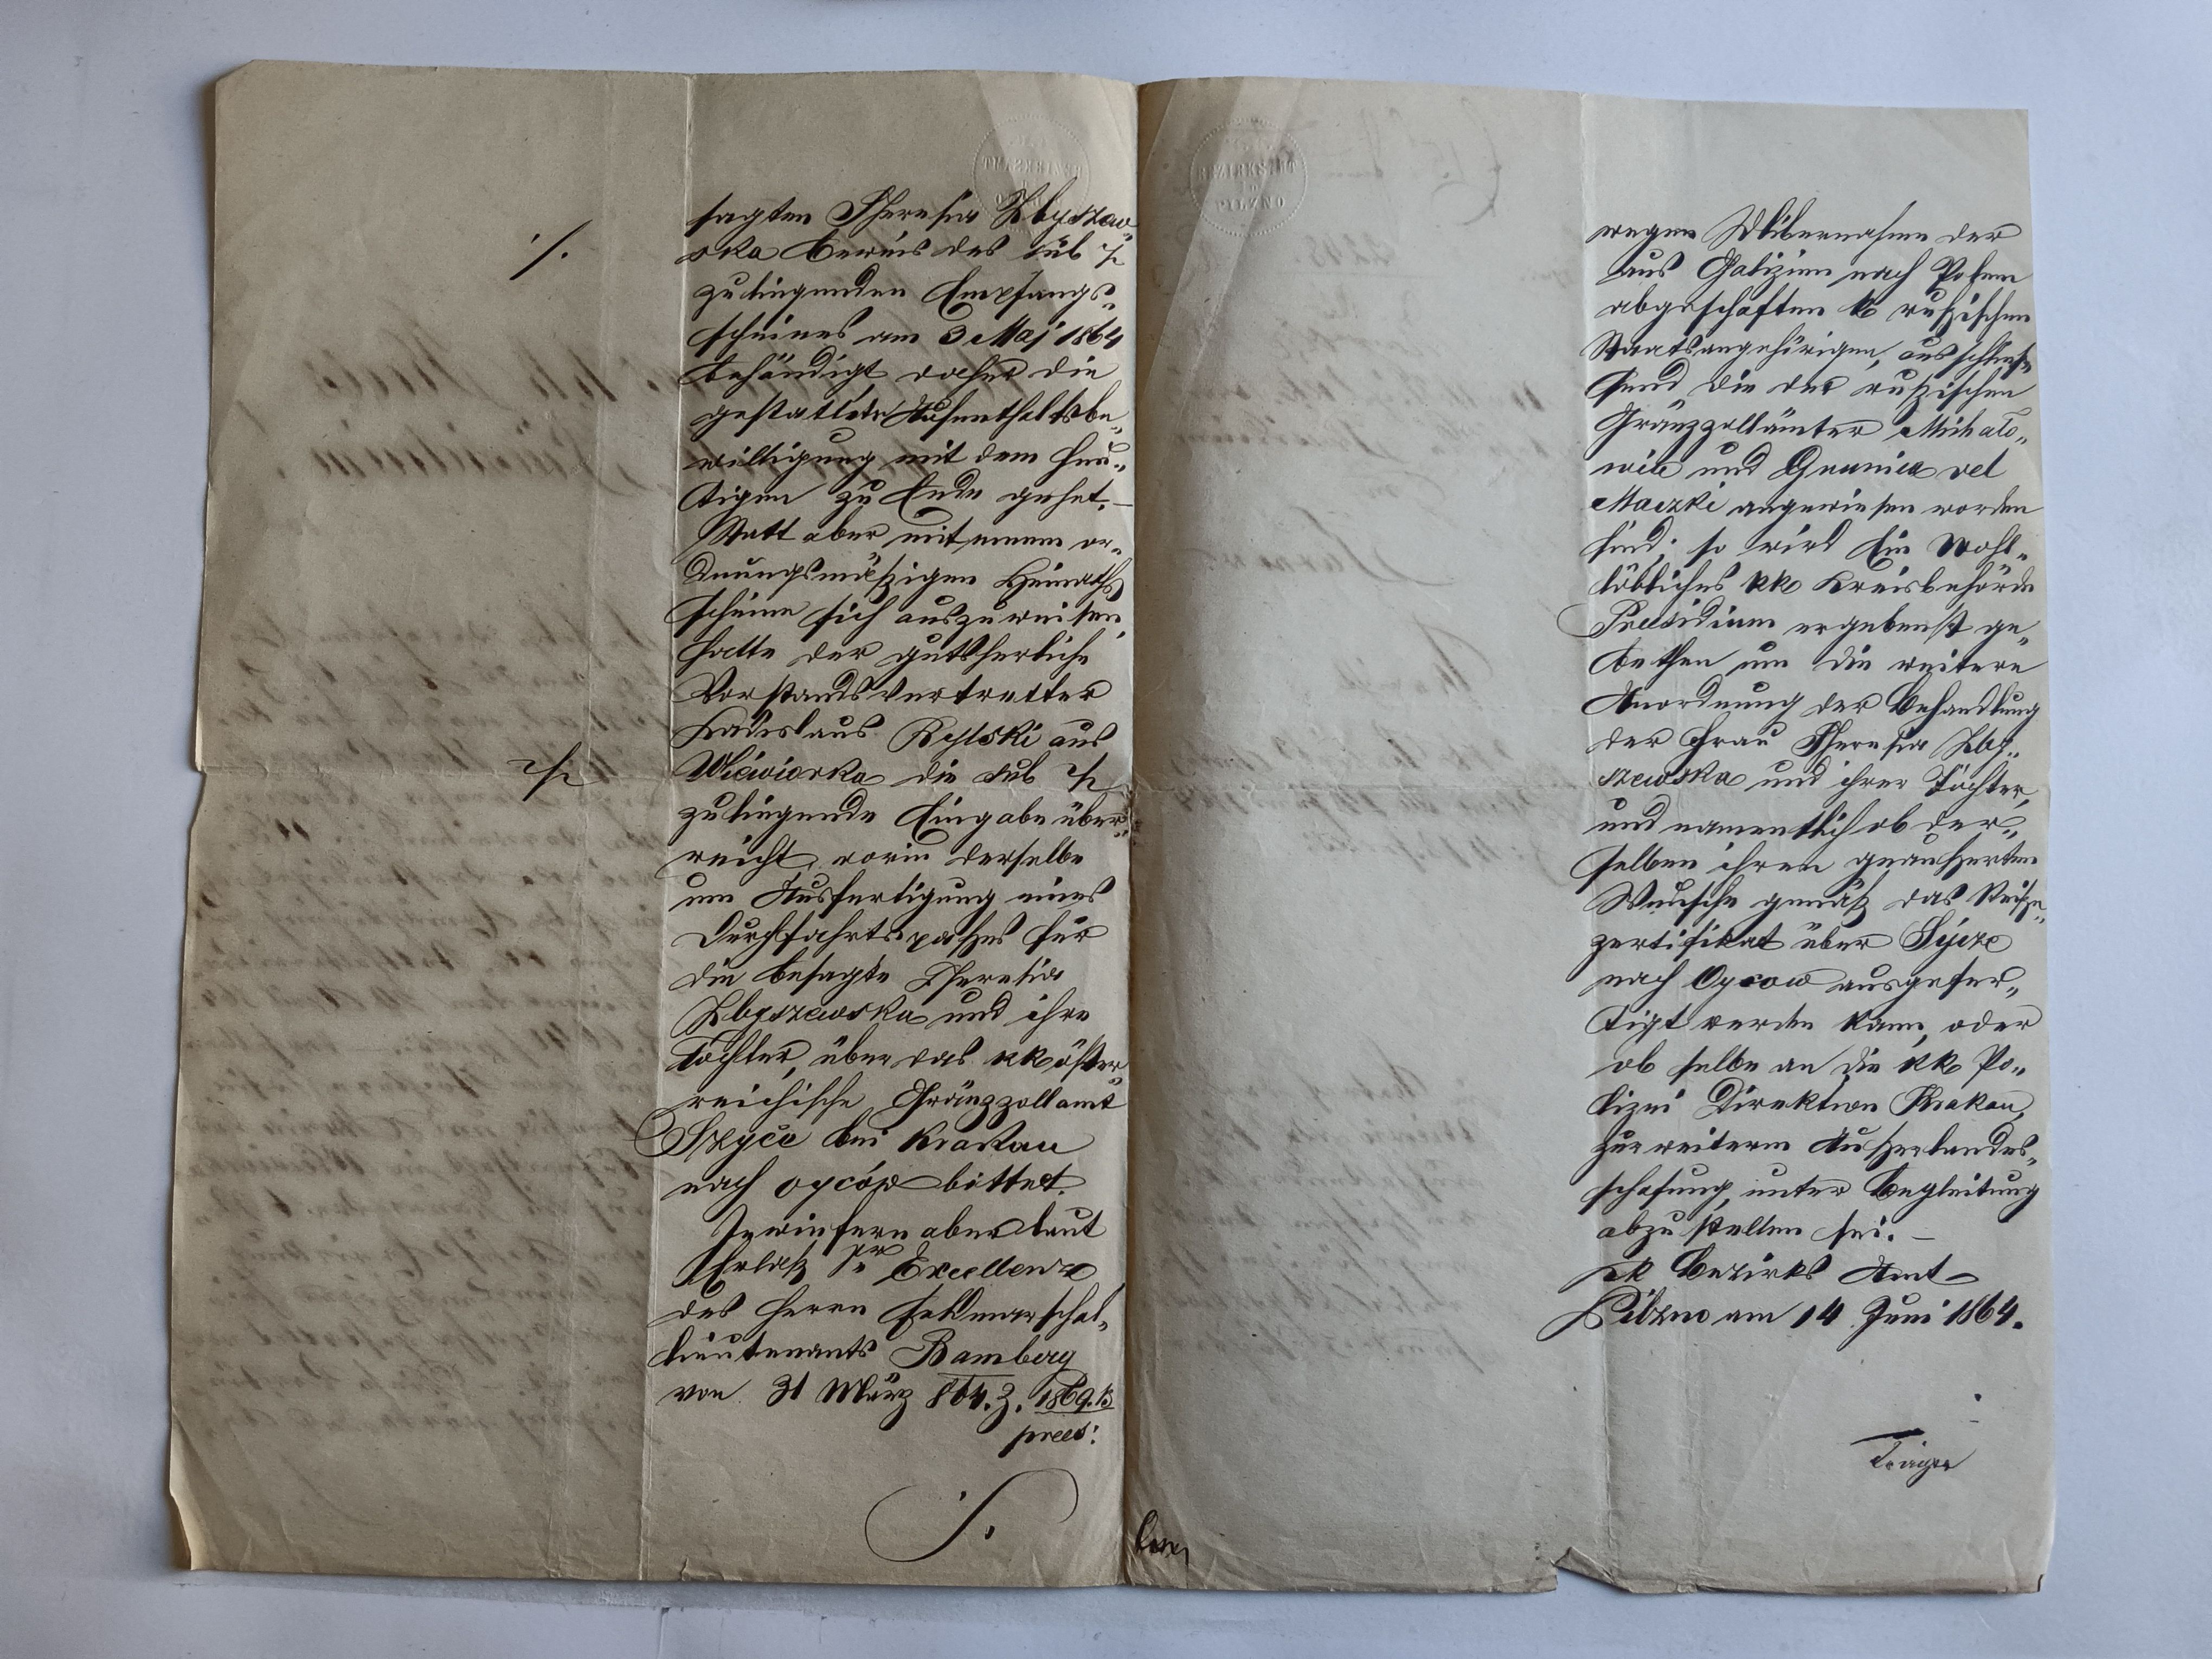 BEZIRKSAMT
PILZNO
sagten Theresia Zbyszew„
ska beweis des sub ./.
zuliegenden Empfangs„
scheines am 3 Maj 1864
behändigt, daher die
gestattete Aufenthaltsbe„
willigung mit dem heu„
tigen zu Ende gehet.–
Statt aber mit einem or„
dnungsmäßigen Heimaths
scheine sich auszuweisen,
hatte der gutsherliche
Vorstandsvertretter
Ladislaus Rylski aus
Wiewiorka die sub ./.
zuliegende Eingabe über„
reicht, worin derselbe
um Ausfertigung eines
Durchfahrtspaßes für
die besagte Theresia
Zbyszewska und ihre
Töchter, über das kk öster„
reichische Gränzzollamt
Szyce bei Krakau
nach Oyców bittet.
Inwiefern aber laut
Erlaß Sr Excellenz
des Herrn Feldmarschal„
lieutenants Bamberg
von 31 März 864. Z. 1869.
praes:
./.
wegen Übernahme der
aus Galizien nach Polen
abgeschaften k rußischen
Staatsangehörigen, ausschließ„
send die der rußischen
Gränzzollämter Michalo„
wice und Granica vel
Maczki angewiesen worden
sind; so wird Ein Wohl„
löbliches kk Kreisbehörde
Praesidium ergebenst ge„
bethen um die weitere
Anordnung der Behandlung
der Frau Theresia Zby„
szewska und ihrer Töchter,
und namentlich ob der„
selben ihren geäußerten
Wunsche gemäß das Reise„
zertifikat über Syce
nach Oycow ausgefer„
tigt werden kann, oder
ob selbe an die kk Po„
lizei Direktion Krakau,
zur weiteren Außerlandes„
schafung, unter Begleitung
abzustellen sei. –
kk Bezirks Amt
Pilzno am 14 Juni 1864.